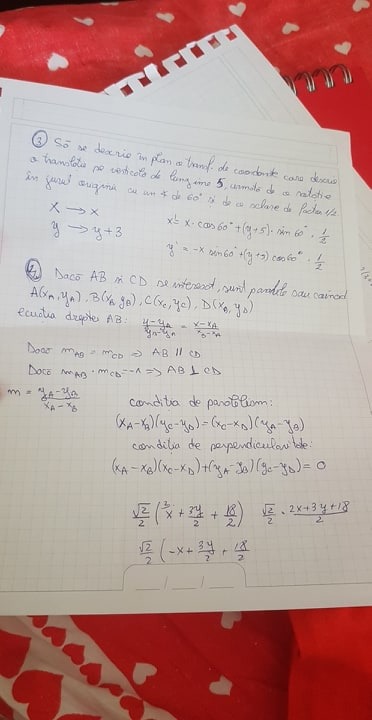 ③ Să se descrie în plan o transf. de coordonate care descrie
o translație pe verticală de lungime 5, urmată de o rotație
în jurul origine cu un ∡ de 60° și de o scalare de factor 1/2.
x → x
y → y+3
x' = x·cos60° + (y+5)·sin60° · 1/2
y' = -x sin60° + (y+5)cos60° · 1/2
④ Dacă AB și CD se intersect, sunt paralele sau coincid
A(x_A, y_A), B(x_B y_B), C(x_C, y_C), D(x_D, y_D)
ecuția dreptei AB: (y-y_A)/(y_B-y_A) = (x-x_A)/(x_B-x_A)
Dacă m_AB = m_CD ⇒ AB ∥ CD
Dacă m_AB · m_CD = -1 ⇒ AB ⊥ CD
m = (y_A-y_B)/(x_A-x_B)
condiția de paralelism:
(x_A-x_B)(y_C-y_D) = (x_C-x_D)(y_A-y_B)
condiția de perpendicularitate:
(x_A-x_B)(x_C-x_D)+(y_A-y_B)(y_C-y_D) = 0
√2/2 (²x + 3y/2 + 18/2) √2/2 · (2x+3y+18)/2
√2/2 (-x + 3y/2 + 18/2